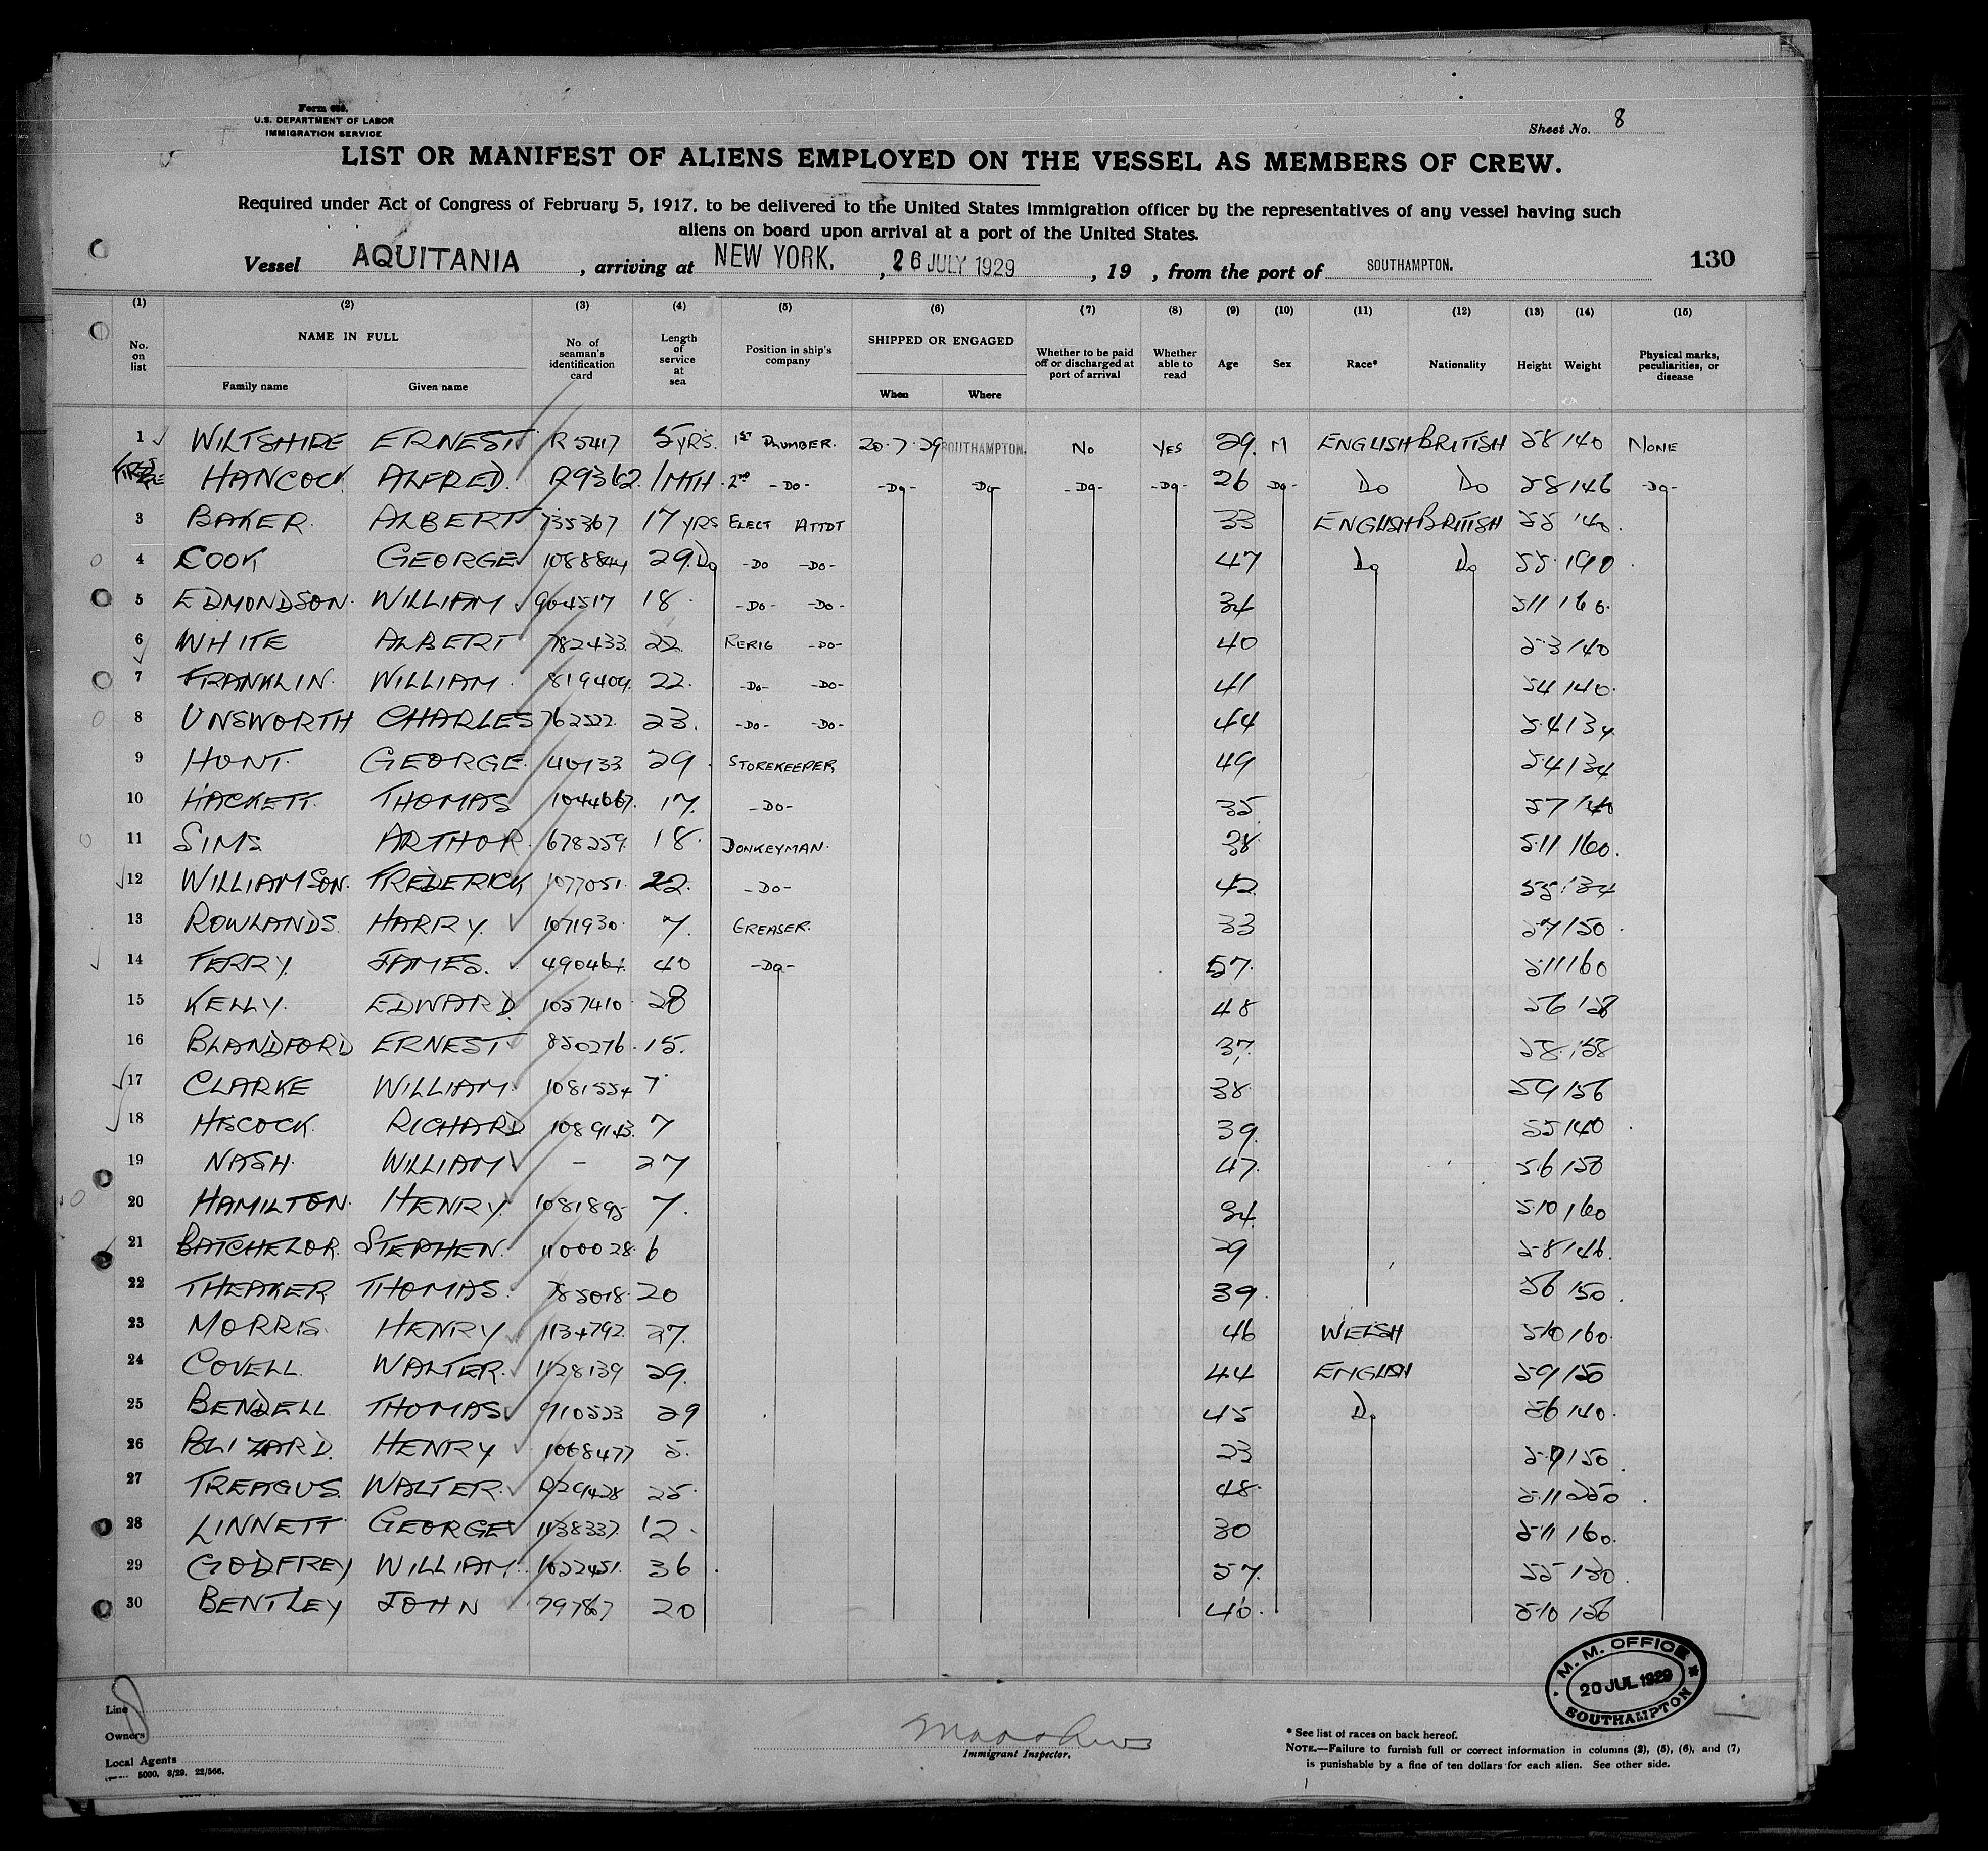 Form 680.
U.S. DEPARTMENT OF LABOR
IMMIGRATION SERVICE
Sheet No. 8
LIST OR MANIFEST OF ALIENS EMPLOYED ON THE VESSEL AS MEMBERS OF CREW.
Required under Act of Congress of February 5, 1917, to be delivered to the United States immigration officer by the representatives of any vessel having such
aliens on board upon arrival at a port of the United States.
Vessel AQUITANIA , arriving at NEW YORK. , 26 JULY 1929 , 19 , from the port of SOUTHAMPTON. 130
(1) (2) (3) (4) (5) (6) (7) (8) (9) (10) (11) (12) (13) (14) (15)
No. on list NAME IN FULL Family name Given name No. of seaman's identification card Length of service at sea Position in ship's company SHIPPED OR ENGAGED When Where Whether to be paid off or discharged at port of arrival Whether able to read Age Sex Race* Nationality Height Weight Physical marks, peculiarities, or disease
1 WILTSHIRE ERNEST R5417 5 YRS. 1ST PLUMBER. 20.7.29 SOUTHAMPTON. NO YES 29. M ENGLISH BRITISH 58 140 NONE
HANCOCK ALFRED. R9362. 1 MTH. 2ND -DO- -DO- -DO- -DO- -DO- 26 -DO- DO DO 58 146 -DO-
3 BAKER. ALBERT 735367 17 YRS ELECT ATTDT 33 ENGLISH BRITISH 55 140.
4 COOK GEORGE 1088844 29. DO -DO -DO- 47 DO DO 55 190.
5 EDMONDSON. WILLIAM 904517 18 -DO- -DO- 34 511 160.
6 WHITE ALBERT 782433. 22 RERIG -DO- 40 53 140
7 FRANKLIN. WILLIAM. 819409. 22. -DO- -DO- 41 54 140.
8 UNSWORTH CHARLES 762522. 23. -DO- -DO- 44 54 134
9 HUNT. GEORGE. 40733 29. STOREKEEPER 49 54 134
10 HACKETT. THOMAS 1044667. 17. -DO- 35 57 140
11 SIMS ARTHUR. 678259. 18. DONKEYMAN. 38 5.11 160.
12 WILLIAMSON. FREDERICK 1077051. 22. -DO- 42 55 134
13 ROWLANDS. HARRY. 1071930. 7. GREASER. 33 57 150.
14 FERRY. JAMES. 490464. 40 -DO- 57. 511 160
15 KELLY. EDWARD. 1057410 28 48 56 158
16 BLANDFORD ERNEST 850276. 15. 37. 58. 158
17 CLARKE WILLIAM. 1081554 7 38. 59 156
18 HISCOCK. RICHARD 1089143. 7 39. 55 140
19 NASH. WILLIAM - 27 47. 56 150
20 HAMILTON. HENRY. 1081895 7. 34. 5.10 160
21 BATCHELOR. STEPHEN. 1100028. 6 29 58 146.
22 THEAKER THOMAS. 785018. 20 39. 56 150.
23 MORRIS. HENRY 1134792. 27. 46 WELSH 5.10 160.
24 COVELL. WALTER. 1128139 29. 44 ENGLISH 59 150
25 BENDELL THOMAS. 910523 29 45 DO 56 140.
26 BLIZARD. HENRY 1068477 5. 23 57 150.
27 TREAGUS. WALTER. 25. 48. 5.11 250.
28 LINNETT GEORGE 1138337. 12. 30 5.11 160.
29 GODFREY WILLIAM. 1022451. 36. 57. 55 130.
30 BENTLEY JOHN 79767 20 40. 5.10 156
M. M. OFFICE
20 JUL 1929
SOUTHAMPTON
Line
Owners
Local Agents
5000. 3/29. 22/566.
Immigrant Inspector.
* See list of races on back hereof.
NOTE.—Failure to furnish full or correct information in columns (2), (5), (6), and (7)
is punishable by a fine of ten dollars for each alien. See other side.